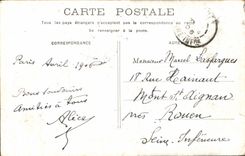 CARTE POSTALE
Tous les pays étrangers n'acceptent pas la correspondance au recto.
Se renseigner à la poste.
CORRESPONDANCE
Paris Avril 1906
Bons souvenirs
Amitiés à tous
Alice
Monsieur Marcel
18 Rue
Mont St Aignan
près Rouen
Seine Inférieure